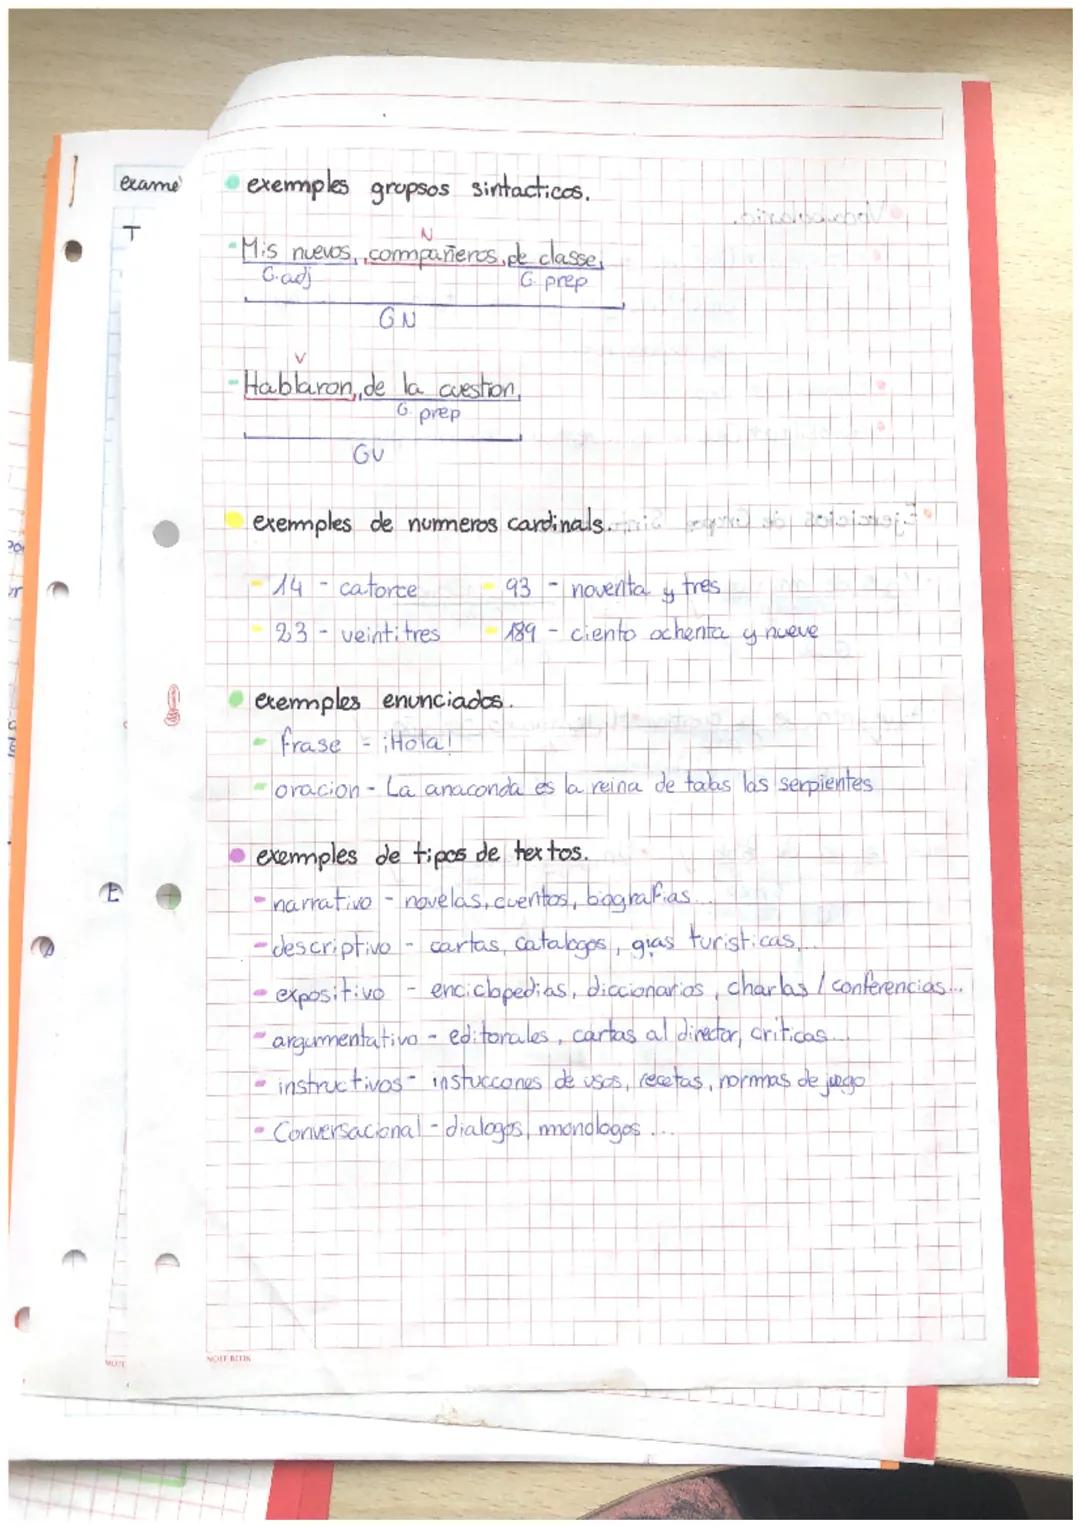 exame
T
exemples gropsos sintacticos.
N
- Mis nuevos, compañeros, de classe,
G.adj G. prep
GN
V
- Hablaron, de la cuestion,
G. prep
GV
exemples de numeros cardinals.
- 14 - catorce - 93 - noventa y tres
- 23 - veintitres - 189 - ciento ochenta y nueve
exemples enunciados.
- frase - ¡Hola!
- oracion - La anaconda es la reina de tabs las serpientes
exemples de tipos de textos.
- narrativo - novelas, cuentos, biografias...
- descriptivo - cartas, catalogos, gias turisticas,...
- expositivo - enciclopedias, diccionarios, charlas / conferencias...
- argumentativo - editorales, cartas al director, criticas...
- instructivos - instuccones de usos, recetas, normas de juego
- Conversacional - dialogos, monologos ...
E
NOTE BOOK
NOTE